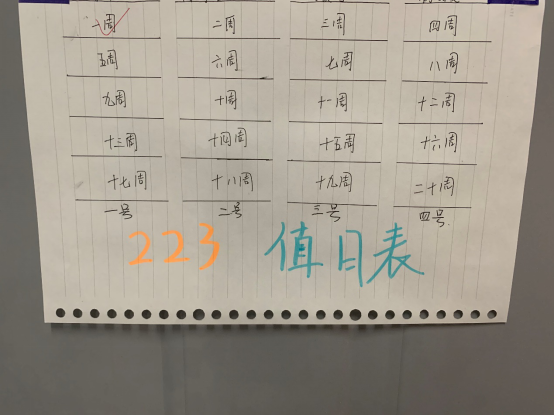 一周 二周 三周 四周
五周 六周 七周 八周
九周 十周 十一周 十二周
十三周 十四周 十五周 十六周
十七周 十八周 十九周 二十周
一号 二号 三号 四号
223 值日表